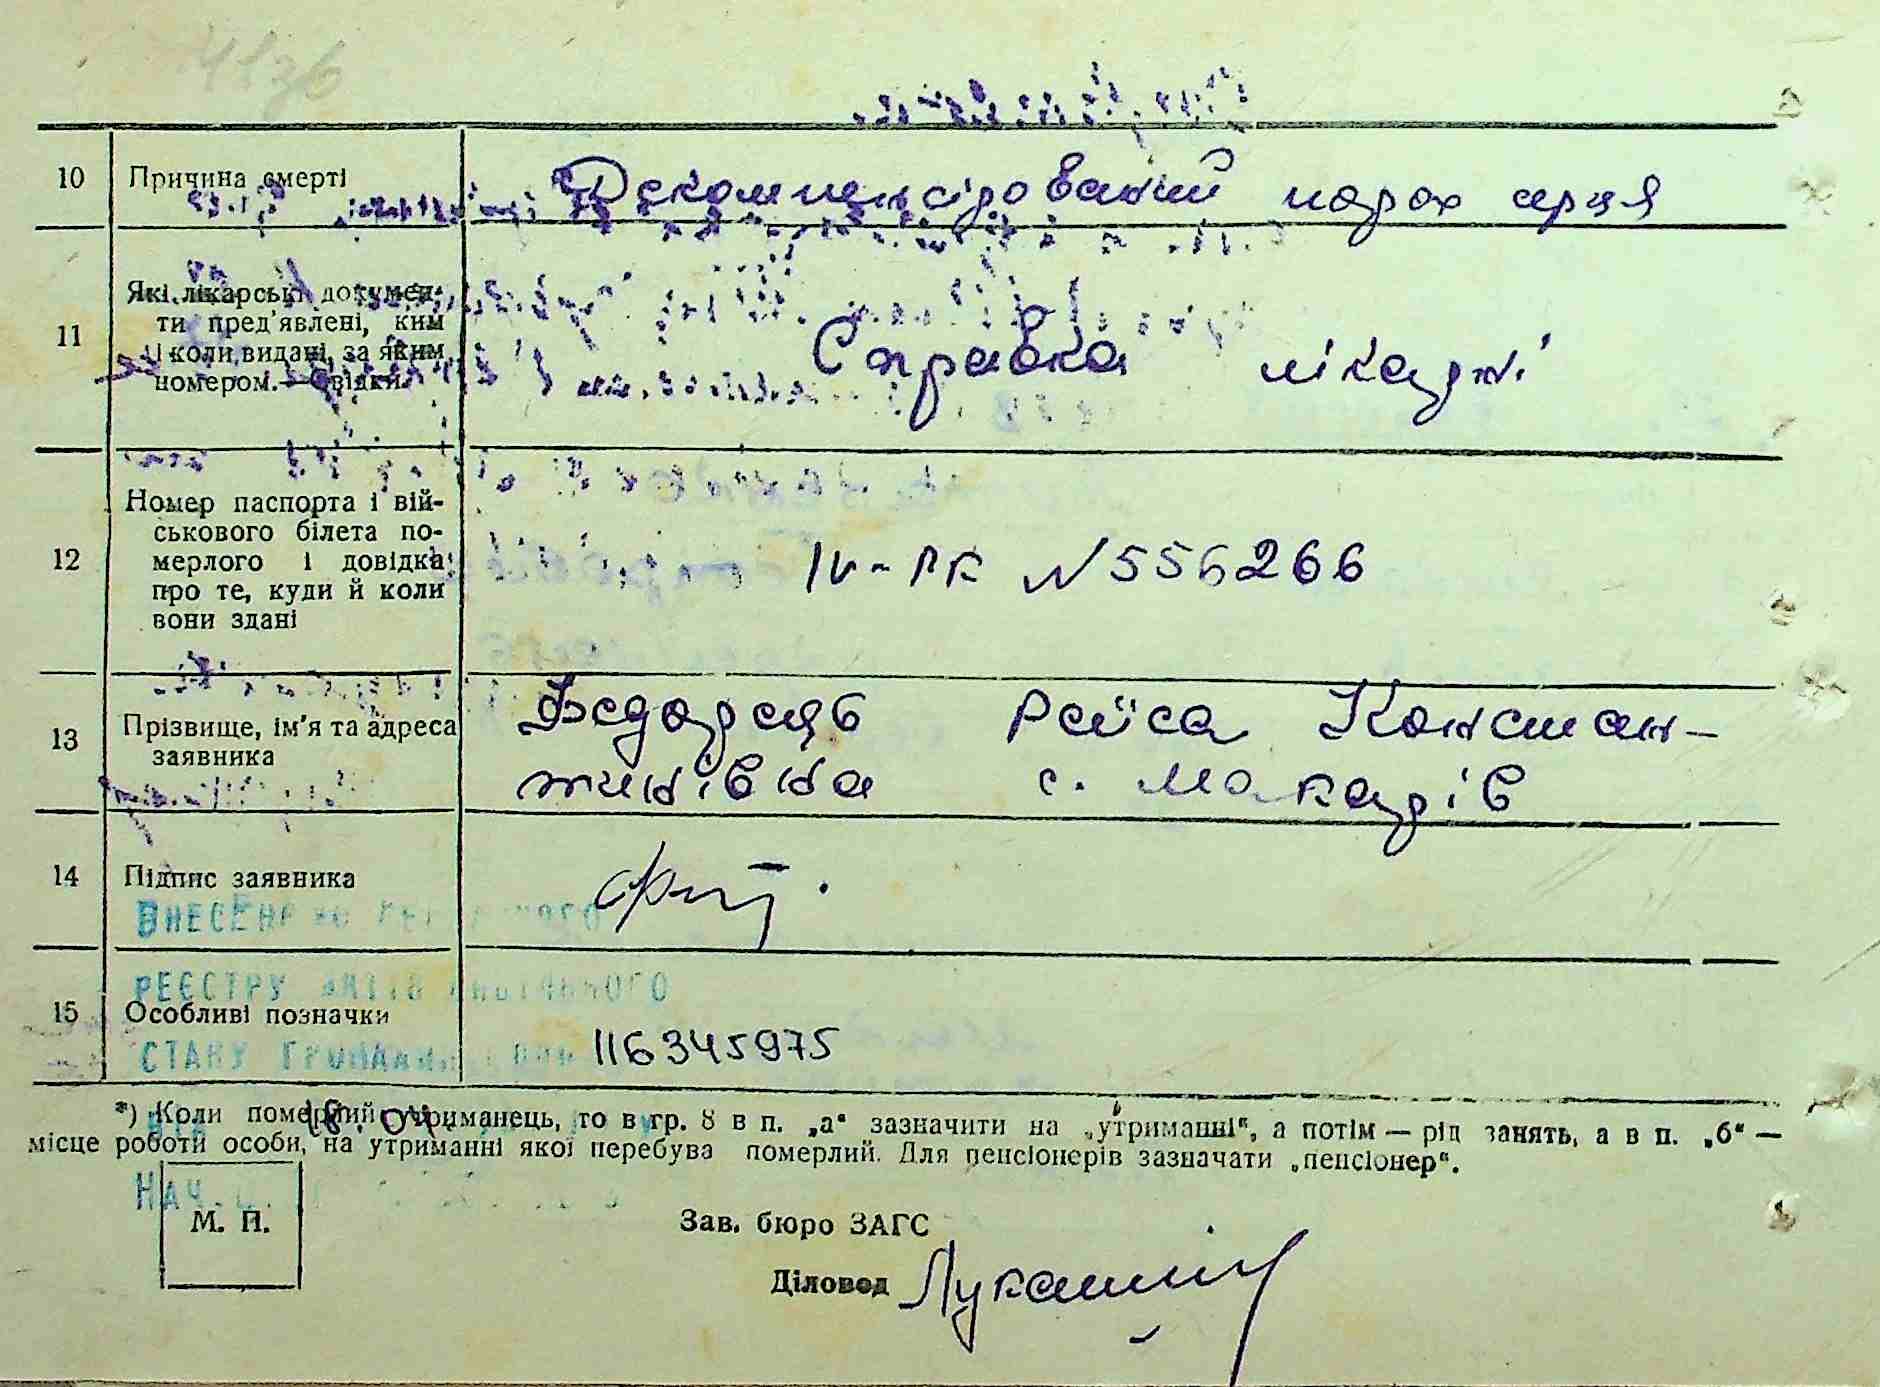 10 Причина смерті Декомпенсірований порок серця
11 Які лікарські докумен-
ти пред'явлені, ким
і коли видані, за яким
номером.— Свідки
Справка лікарні
12 Номер паспорта і вій-
ськового білета по-
мерлого і довідка
про те, куди й коли
вони здані
IV-РК N 556266
13 Прізвище, ім'я та адреса
заявника
Федорець Раїса Констан-
тинівна с. Макарів
14 Підпис заявника
ВНЕСЕНО ДО
РЕЄСТРУ АКТІВ ЦИВІЛЬНОГО
15 Особливі позначки
СТАНУ ГРОМАДЯН
116345975
*) Коли померлий утриманець, то в гр. 8 в п. „а“ зазначити на „утриманні“, а потім — рід занять, а в п. „б“ —
18.04.
місце роботи особи, на утриманні якої перебува померлий. Для пенсіонерів зазначати „пенсіонер“.
НАЧ.
М. П.
Зав. бюро ЗАГС
Діловод